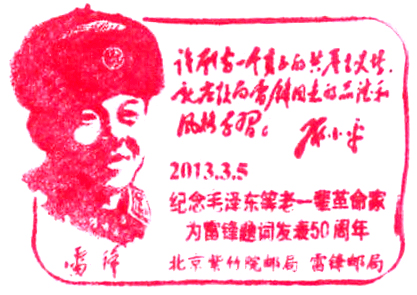 谁愿当一个真正的共产主义者,
就应该向雷锋同志的品德和
风格学习。
邓小平
2013.3.5
纪念毛泽东等老一辈革命家
为雷锋题词发表50周年
雷锋
北京紫竹院邮局 雷锋邮局